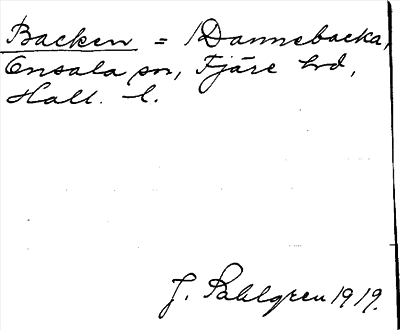 Backen = Dannebacka,
Onsala sn, Fjäre hd,
Hall. l.
J. Sahlgren 1919.